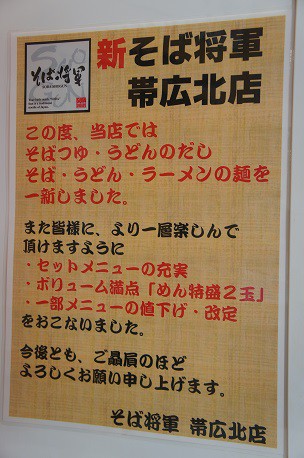 そば将軍
新そば将軍
帯広北店
この度、当店では
そばつゆ・うどんのだし
そば・うどん・ラーメンの麺を
一新しました。
また皆様に、より一層楽しんで
頂けますように
・セットメニューの充実
・ボリューム満点「めん特盛2玉」
・一部メニューの値下げ・改定
をおこないました。
今後とも、ご贔屓のほど
よろしくお願い申し上げます。
そば将軍 帯広北店